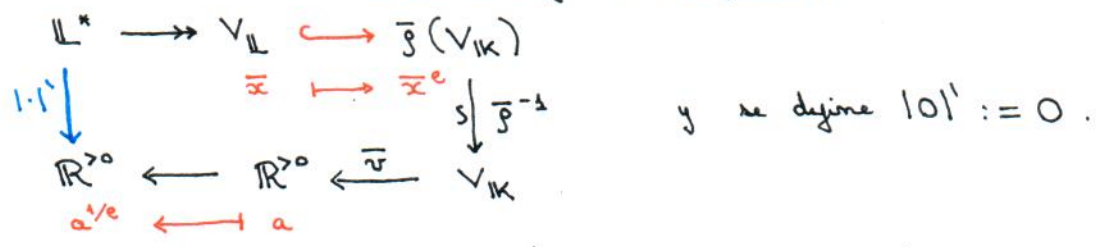 𝕃* ↠ V_𝕃 ↪ ρ̄(V_𝕂)
x̄ ↦ x̄^e
|·|' ↓ ≀↓ ρ̄^{-1} y se define |0|' := 0.
ℝ^{>0} ← ℝ^{>0} ←^{v̄} V_𝕂
a^{1/e} ↤ a